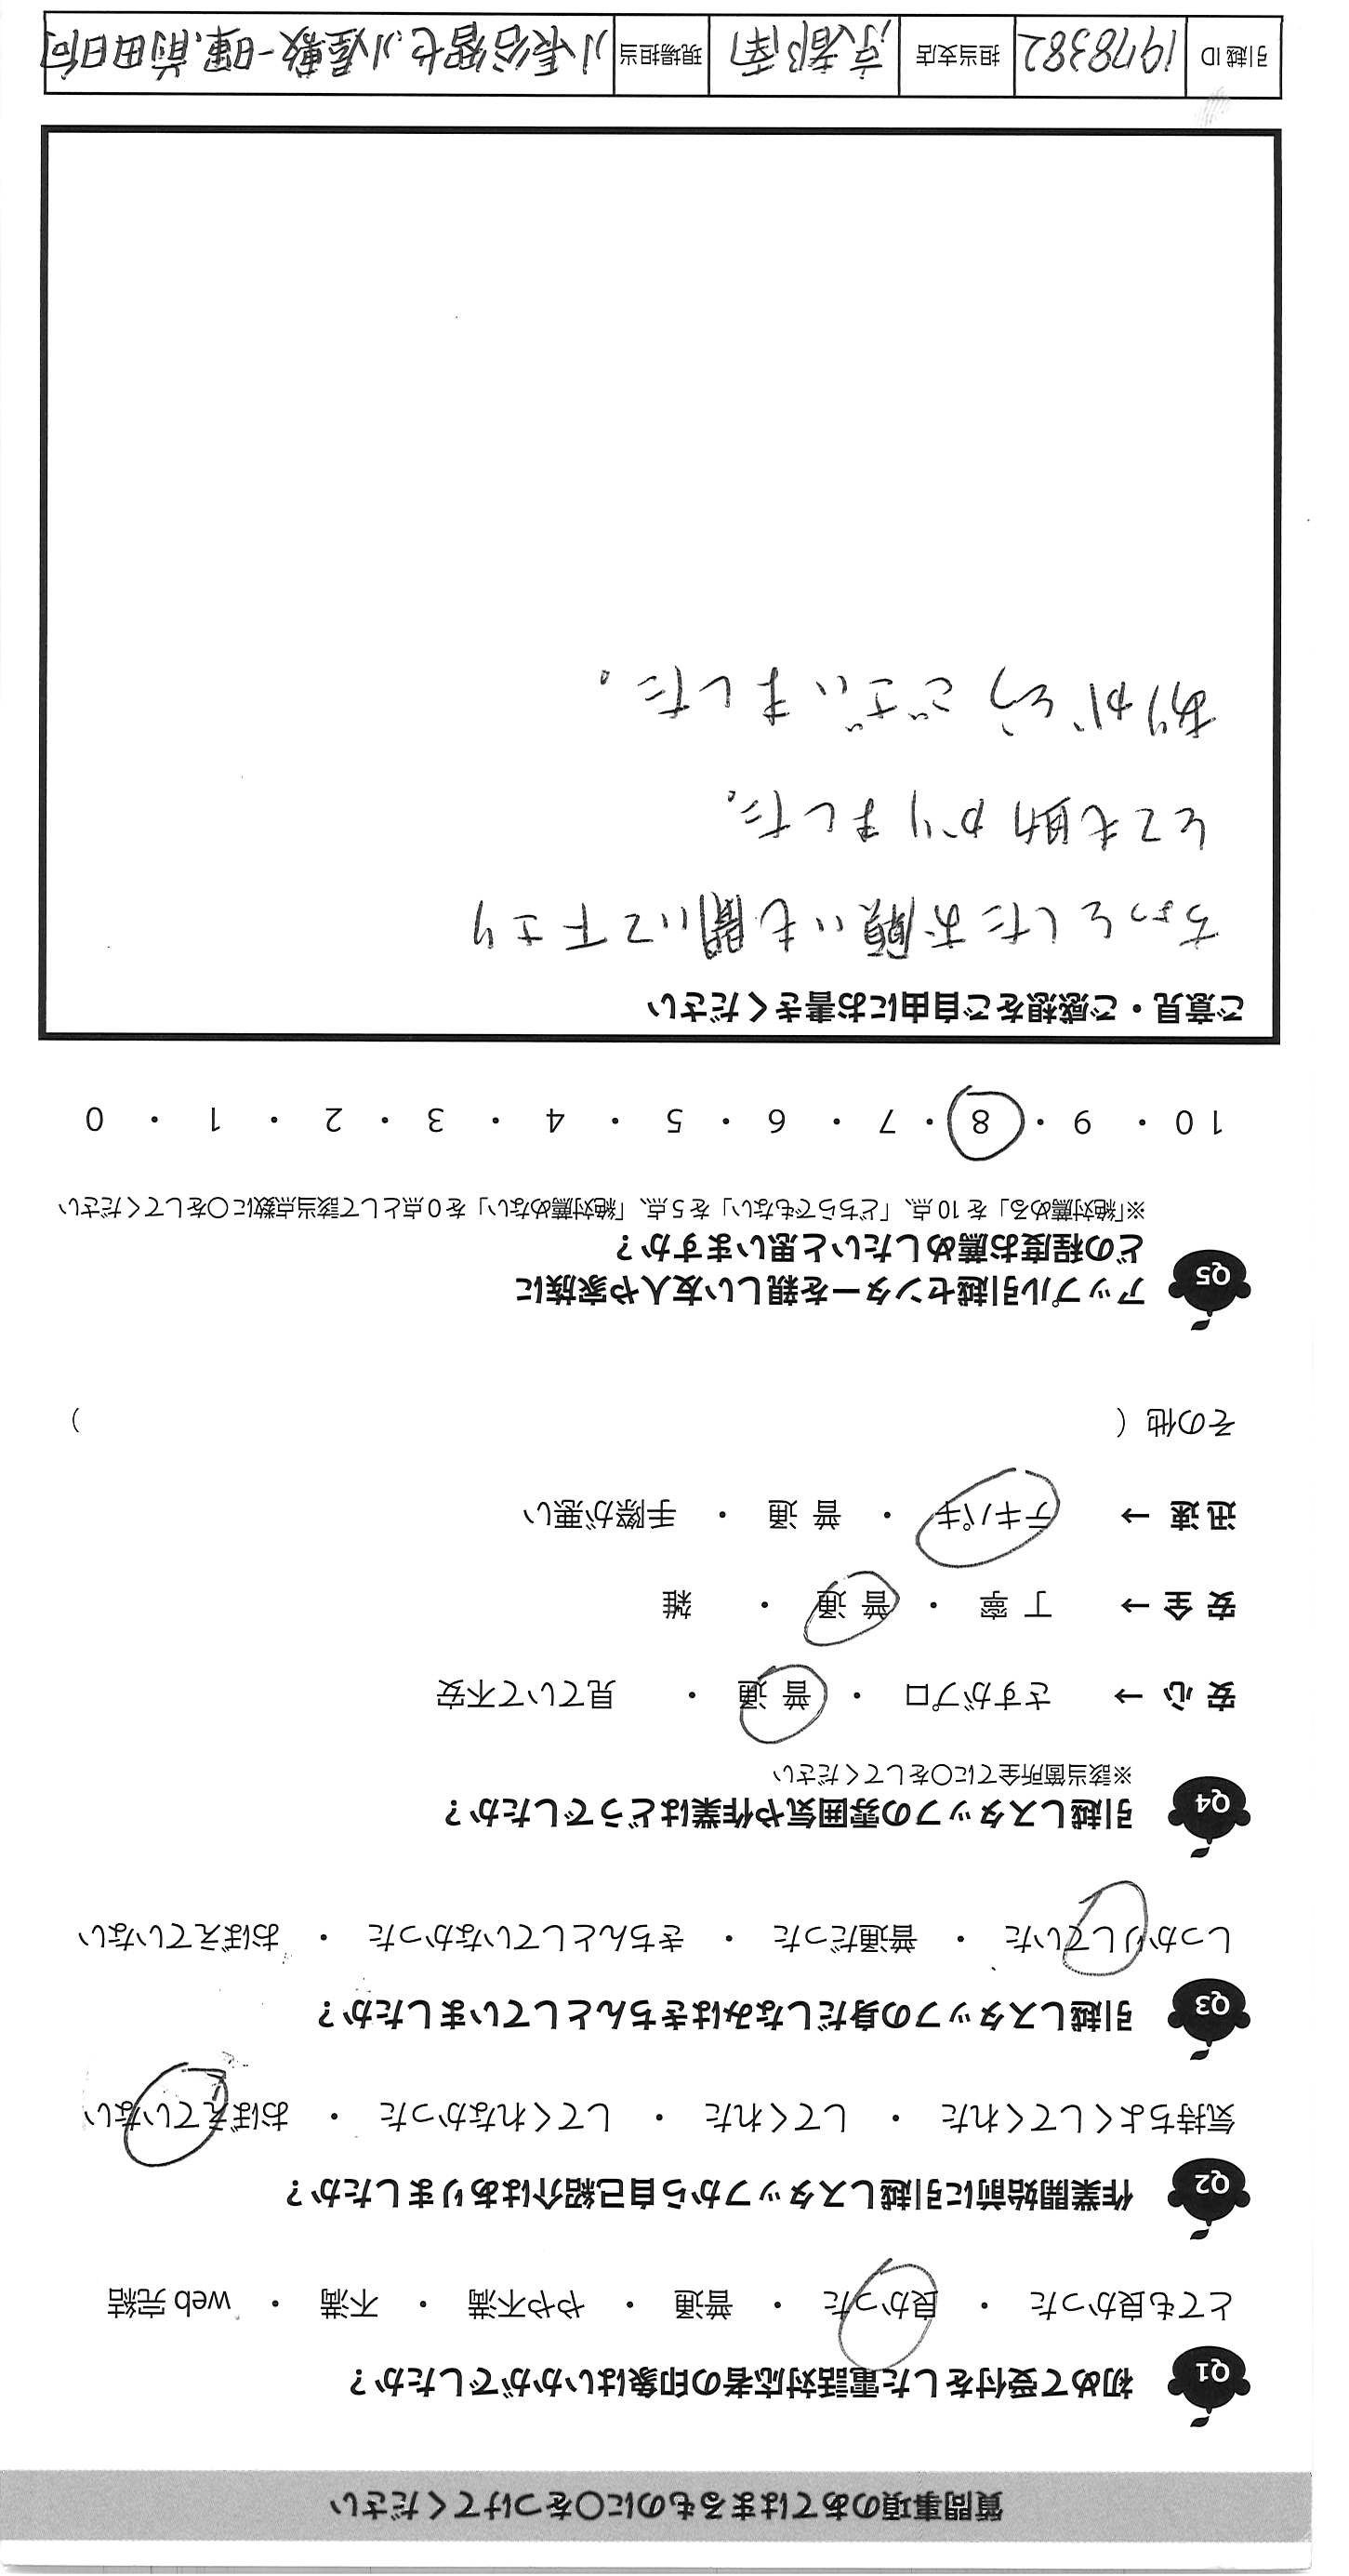 質問事項のあてはまるものに○をつけてください
Q1 初めて受付をした電話対応者の印象はいかがでしたか？
とても良かった ・ 良かった ・ 普通 ・ やや不満 ・ 不満 ・ web 完結
Q2 作業開始前に引越しスタッフから自己紹介はありましたか？
気持ちよくしてくれた ・ してくれた ・ してくれなかった ・ おぼえていない
Q3 引越しスタッフの身だしなみはきちんとしていましたか？
しっかりしていた ・ 普通だった ・ きちんとしていなかった ・ おぼえていない
Q4 引越しスタッフの雰囲気や作業はどうでしたか？
※該当箇所全てに○をしてください
安 心 → さすがプロ ・ 普 通 ・ 見ていて不安
安 全 → 丁 寧 ・ 普 通 ・ 雑
迅 速 → テキパキ ・ 普 通 ・ 手際が悪い
その他（ ）
Q5 アップル引越センターを親しい友人や家族に
どの程度お薦めしたいと思いますか？
※「絶対薦める」を 10 点、「どちらでもない」を 5 点、「絶対薦めない」を 0 点として該当点数に○をしてください
10 ・ 9 ・ 8 ・ 7 ・ 6 ・ 5 ・ 4 ・ 3 ・ 2 ・ 1 ・ 0
ご意見・ご感想をご自由にお書きください
ちょっとしたお願いも聞いて下さり
とても助かりました。
ありがとうございました。
引越 ID 1978382 担当支店 京都南 現場担当 小長谷 小屋敷一暉、前田日向